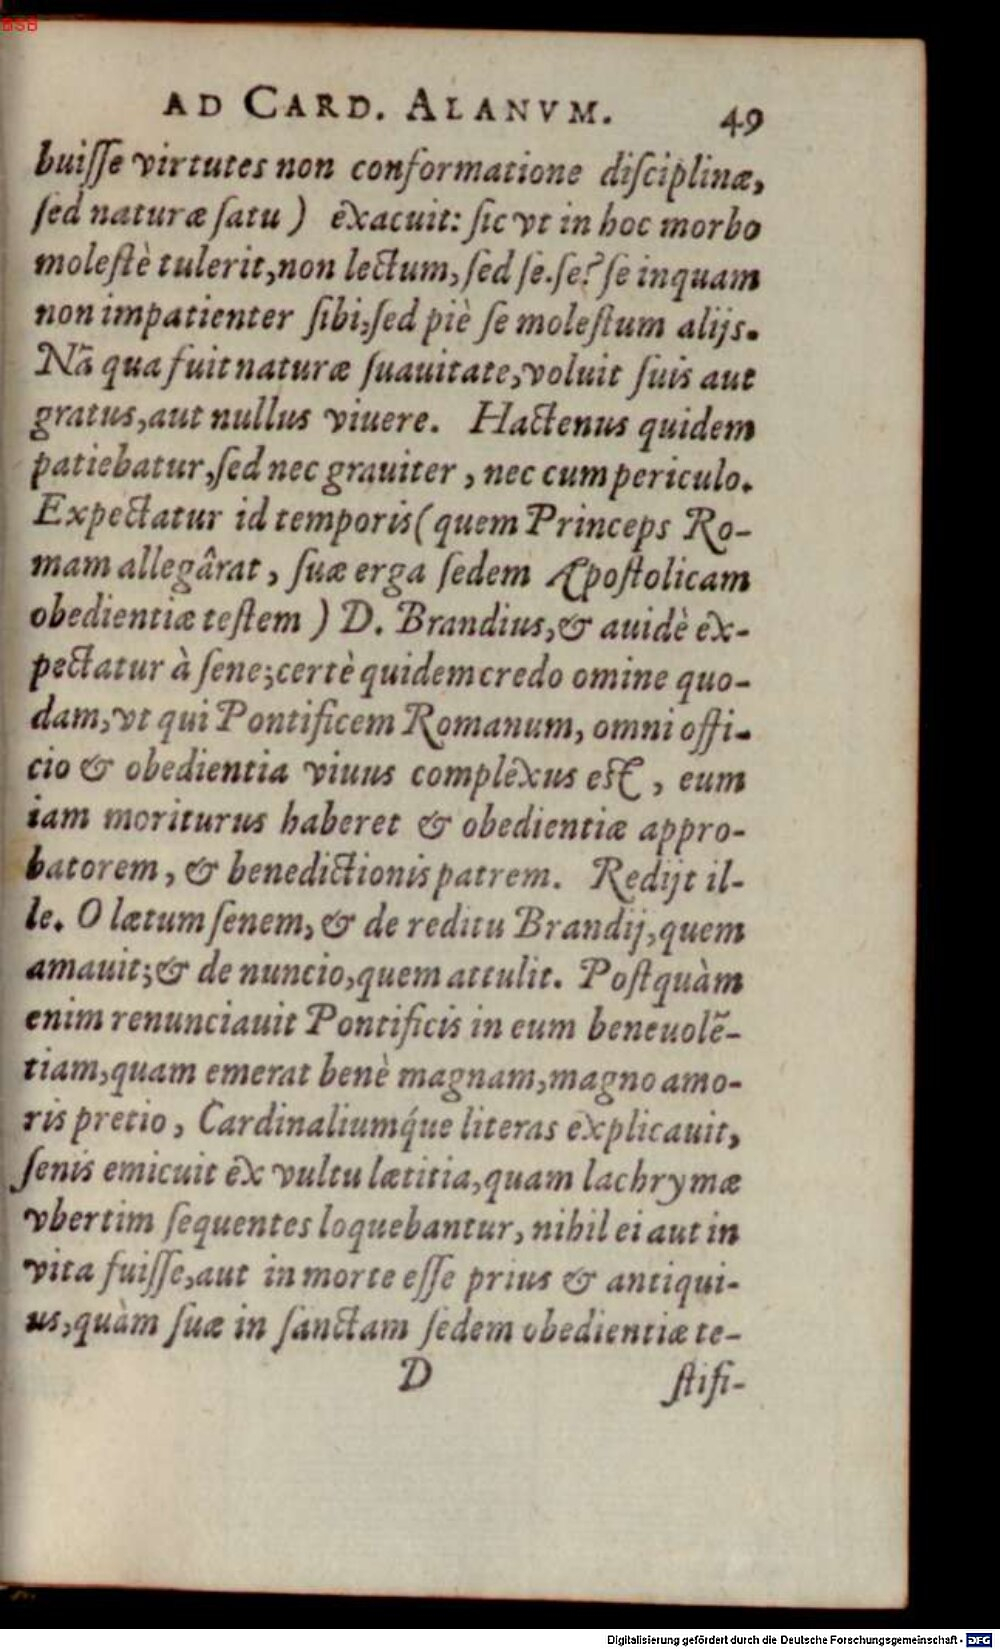 BSB
AD CARD. ALANVM. 49
buiſſe virtutes non conformatione diſciplinæ,
ſed naturæ ſatu) exacuit: ſic vt in hoc morbo
moleſtè tulerit, non lectum, ſed ſe. ſe? ſe inquam
non impatienter ſibi, ſed piè ſe moleſtum alijs.
Nā qua fuit naturæ ſuauitate, voluit ſuis aut
gratus, aut nullus viuere. Hactenus quidem
patiebatur, ſed nec grauiter, nec cum periculo.
Expectatur id temporis (quem Princeps Ro-
mam allegârat, ſuæ erga ſedem Apoſtolicam
obedientiæ teſtem) D. Brandius, & auidè ex-
pectatur à ſene; certè quidem credo omine quo-
dam, vt qui Pontificem Romanum, omni offi-
cio & obedientia viuus complexus eſt, eum
iam moriturus haberet & obedientiæ appro-
batorem, & benedictionis patrem. Redijt il-
le. O lætum ſenem, & de reditu Brandij, quem
amauit; & de nuncio, quem attulit. Poſtquàm
enim renunciauit Pontificis in eum beneuolē-
tiam, quam emerat benè magnam, magno amo-
ris pretio, Cardinaliumq́ue literas explicauit,
ſenis emicuit ex vultu lætitia, quam lachrymæ
vbertim ſequentes loquebantur, nihil ei aut in
vita fuiſſe, aut in morte eſſe prius & antiqui-
us, quàm ſuæ in ſanctam ſedem obedientiæ te-
D ſtifi-
Digitalisierung gefördert durch die Deutsche Forschungsgemeinschaft - DFG